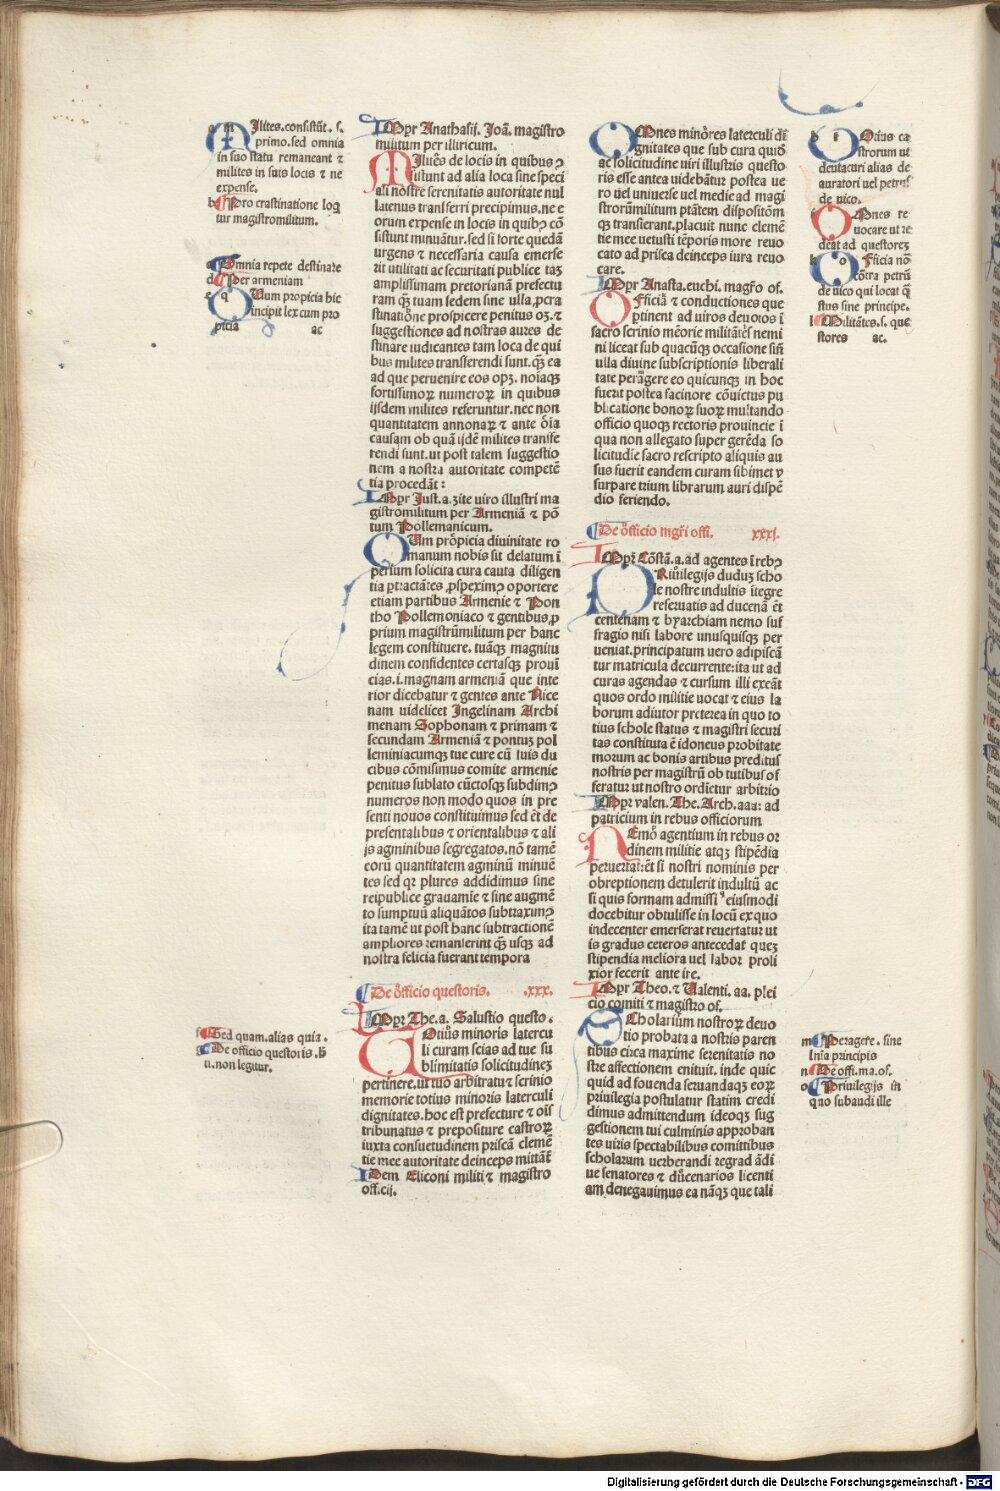 Ilites.consistūt.s.
primo.sed omnia
in suo statu remaneant ⁊
milites in suis locis ⁊ ne
expense.
b Pro crastinatione loq̄
tur magistromilitum.
c Omnia repete destinare
d Per armeniam
e q Uum propicia hic
incipit lex cum pro
picia ac
f Sed quam.alias quia.
g De officio questoris.h̄
ti.non legitur.
IMpr̄ Anathasij. Joā. magistro
militum per illiricum.
MIlites de locis in quibus ↄ
sistunt ad alia loca sine speci
ali nostre serenitatis autoritate nul
latenus transferri precipimus.ne e
orum expense in locis in quibꝰ cō
sistunt minuātur.sed si forte quedā
urgens ⁊ necessaria causa emerse
rit utilitati ac securitati publice taꝫ
amplissimam pretorianā prefectu
ram q̄ꝫ tuam sedem sine ulla ꝓcra
stinatiōne prospicere penitus oꝫ. ⁊
suggestiones ad nostras aures de
stinare iudicantes tam loca de qui
bus milites transferendi sunt.q̄ꝫ ea
ad que peruenire eos opꝫ. noīaqꝫ
fortissimoꝝ numeroꝝ in quibus
ijsdem milites referuntur.nec non
quantitatem annonaꝝ ⁊ ante ōia
causam ob quā ijdē milites transfe
rendi sunt.ut post talem suggestio
nem a nostra autoritate competē
tia procedāt:
IMpr̄ Just.a.zite uiro illustri ma
gistromilitum per Armeniā ⁊ pō
tum Pollemanicum.
CUm prōpicia diuinitate ro
manum nobis sit delatum ī
perium solicita cura cauta diligen
tia ꝑtractātes ꝓspeximꝰ oportere
etiam partibus Armenie ⁊ Pon
tho Pollemoniaco ⁊ gentibus ꝓ
prium magistrūmilitum per hanc
legem constituere. tuāqꝫ magnitu
dinem confidentes certasqꝫ prouī
cias.i.magnam armeniā que inte
rior dicebatur ⁊ gentes ante Nice
nam uidelicet Ingelinam Archi
menam Sophonam ⁊ primam ⁊
secundam Armeniā ⁊ pontuꝫ pol
leminiacumqꝫ tue cure cū suis du
cibus cōmisimus comite armenie
penitus sublato cūctosqꝫ subdimꝰ
numeros non modo quos in pre
senti nouos constituimus sed ēt de
presentalibus ⁊ orientalibus ⁊ ali
js agminibus segregatos.nō tamē
eorū quantitatem agminū minuē
tes sed qꝛ plures addidimus sine
reipublice grauamīe ⁊ sine augmē
to sumptuū aliquātos subtraximꝰ
ita tamē ut post hanc subtractionē
ampliores remanserint q̄ꝫ usqꝫ ad
nostra felicia fuerant tempora
De officio questoris. .xxx.
IMpr̄ The.a. Salustio questo.
TOtiꝰ minoris latercu
li curam scias ad tue su
blimitatis solicitudineꝫ
pertinere.ut tuo arbitratu ⁊ scrinio
memorie totius minoris laterculi
dignitates.hoc est prefecture ⁊ oīs
tribunatus ⁊ prepositure castroꝝ
iuxta consuetudinem priscā clemē
tie mee autoritate deinceps mittāt
IDem Eliconi militi ⁊ magistro
off.cij.
OMnes minōres laterculi dī
gnitates que sub cura quid̄
ac solicitudine uiri illustris questo
ris esse antea uidebātur postea ue
ro uel uniuerse uel medie ad magi
strorūmilitum ptātem dispositōm
qꝫ transierant.placuit nunc clemē
tie mee uetusti tēporis more reuo
cato ad prisca deinceps iura reuo
care.
IMpr̄ Anasta.euchi. magr̄o of.
OFficia ⁊ conductiones que
ꝑtinent ad uiros deuotos ī
sacro scrinio mēorie militātes nemi
ni liceat sub quacūqꝫ occasione sin̄
ulla diuine subscriptionis liberali
tate perāgere eo quicunqꝫ in hoc
fuerit postea facinore cōuictus pu
blicatione bonoꝝ suoꝝ multando
officio quoqꝫ rectoris prouincie ī
qua non allegato super gerēda so
licitudīe sacro rescripto aliquis au
sus fuerit eandem curam sibimet v
surpare trium librarum auri dispē
dio feriendo.
De officio mgr̄i offi. xxxi.
IMpr̄ Cōstā.a.ad agentes ī rebꝰ
PRiuilegijs duduꝫ scho
le nostre indultis ītegre
reseruatis ad ducenā ēt
centenam ⁊ byarchiam nemo suf
fragio nisi labore unusquisqꝫ per
ueniat.principatum uero adipiscā
tur matricula decurrente:ita ut ad
curas agendas ⁊ cursum illi exeāt
quos ordo militie uocat ⁊ eius la
borum adiutor preterea in quo to
tius schole status ⁊ magistri securi
tas constituta ē idoneus probitate
morum ac bonis artibus preditus
nostris per magistrū ob tutibus of
feratur ut nostro ordīetur arbitrio
IMpr̄ valen. The. Arch. aaa: ad
patricium in rebus officiorum
NEmō agentium in rebus or
dinem militie atqꝫ stipēdia
peruertat:ēt si nostri nominis per
obreptionem detulerit indultū ac
si quis formam admissi eiusmodi
docebitur obtulisse in locū ex quo
indecenter emerserat reuertatur ut
is gradus ceteros antecedat queꝫ
stipendia meliora uel labor proli
xior fecerit ante ire.
IMpr̄ Theo. ⁊ Ualenti. aa. plei
cio comiti ⁊ magistro of.
SCholarium nostroꝝ deuo
tio probata a nostris paren
tibus circa maxime serenitatis no
stre affectionem enituit. inde quic
quid ad fouenda seruandaqꝫ eoꝝ
priuilegia postulatur statim credi
dimus admittendum ideoqꝫ sug
gestionem tui culminis approban
tes uiris spectabilibus comitibus
scholarum uerberandi regrad ādi
ue senatores ⁊ dūcenarios licenti
am denegauimus ea nāqꝫ que tali
h t Otius ca
strorum ut
deutacuri alias de
auratori uel petrus
de uico.
i Omnes re
uocare ut re
deat ad questoreꝫ
k o Fficia nō
cōtra petrū
de uico qui locat q̄
stus sine principe.
l Militātes.s. que
stores ac.
m Peragere. sine
lnīa principis
n De offi.ma.of.
o Priuilegijs in
quo subaudi ille
Digitalisierung gefördert durch die Deutsche Forschungsgemeinschaft - DFG